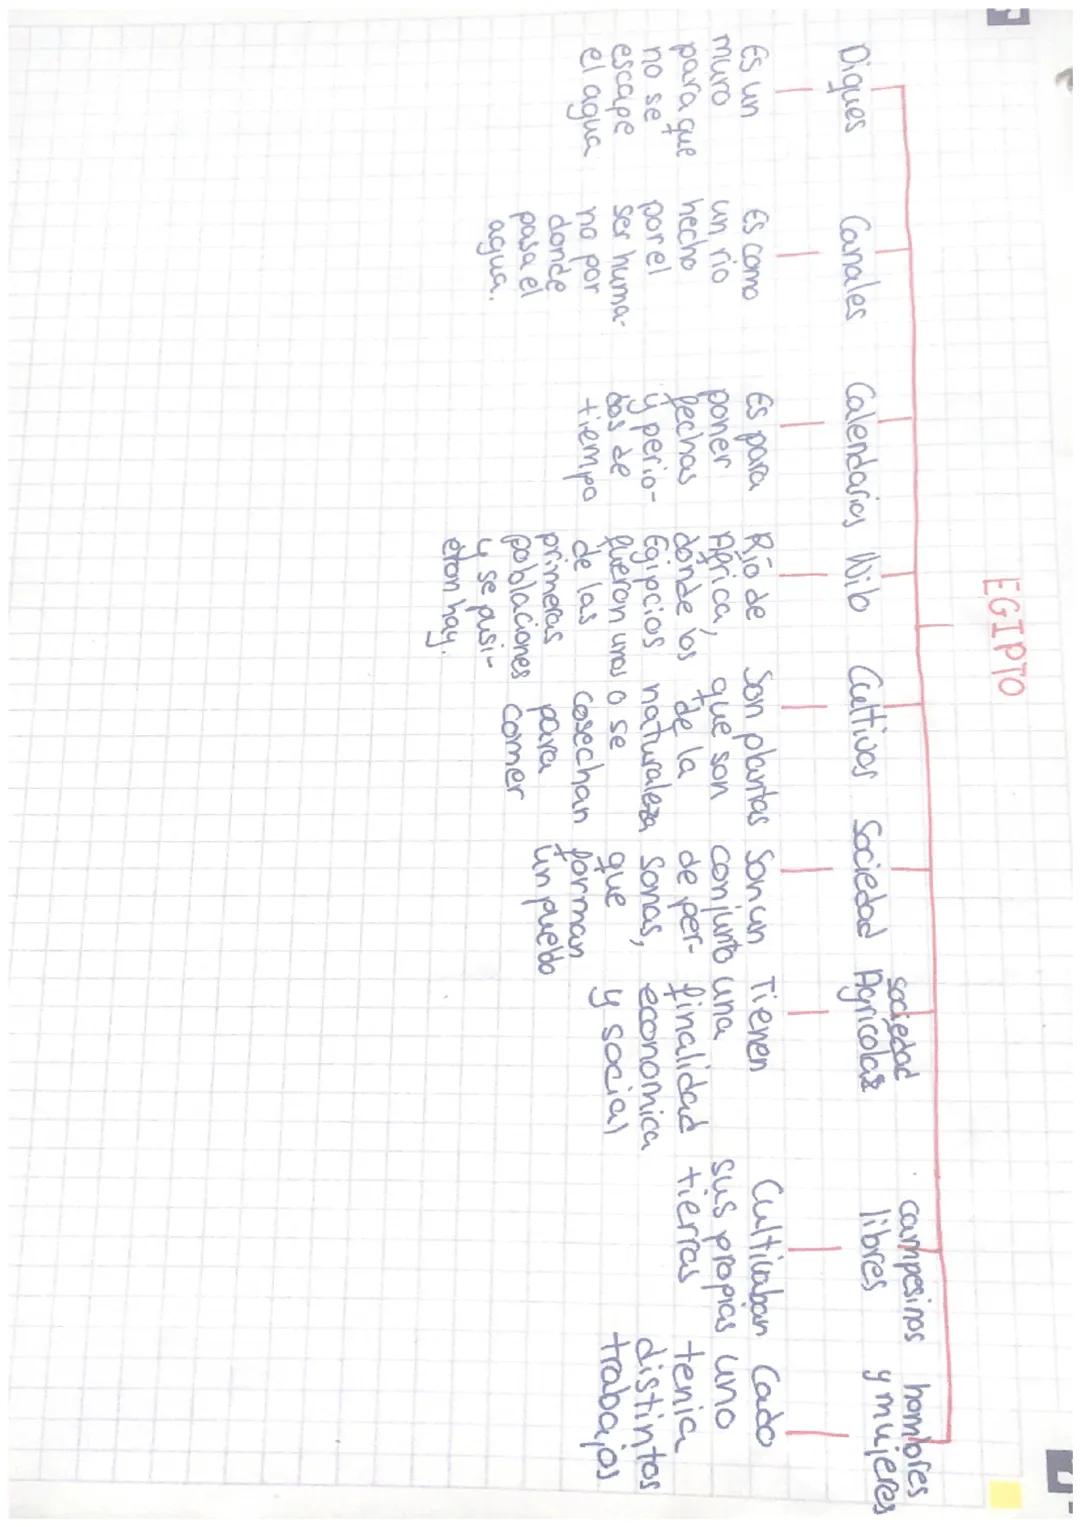 EGIPTO
Diques
Es un
muro
para que
no se
escape
el agua
Canales
Es como
un rio
hecho
por el
ser huma-
no por
donde
pasa el
agua.
Calendarios
Es para
poner
fechas
y perio-
dos de
tiempo
Nilo
Río de
Africa,
dónde los
Egipcios
fueron unos
de las
primeras
poblaciones
y se pusi-
eron hay.
Cultivos
Son plantas
que son
de la
naturaleza
o se
cosechan
para
comer
Sociedad
Son un
conjunto
de per-
sonas,
que
forman
un pueblo
sociedad
Agricolas
Tienen
una
finalidad
economica
y social
campesinos
libres
Cultivaban
sus propias
tierras
hombres
y mujeres
Cada
uno
tenia
distintos
trabajos